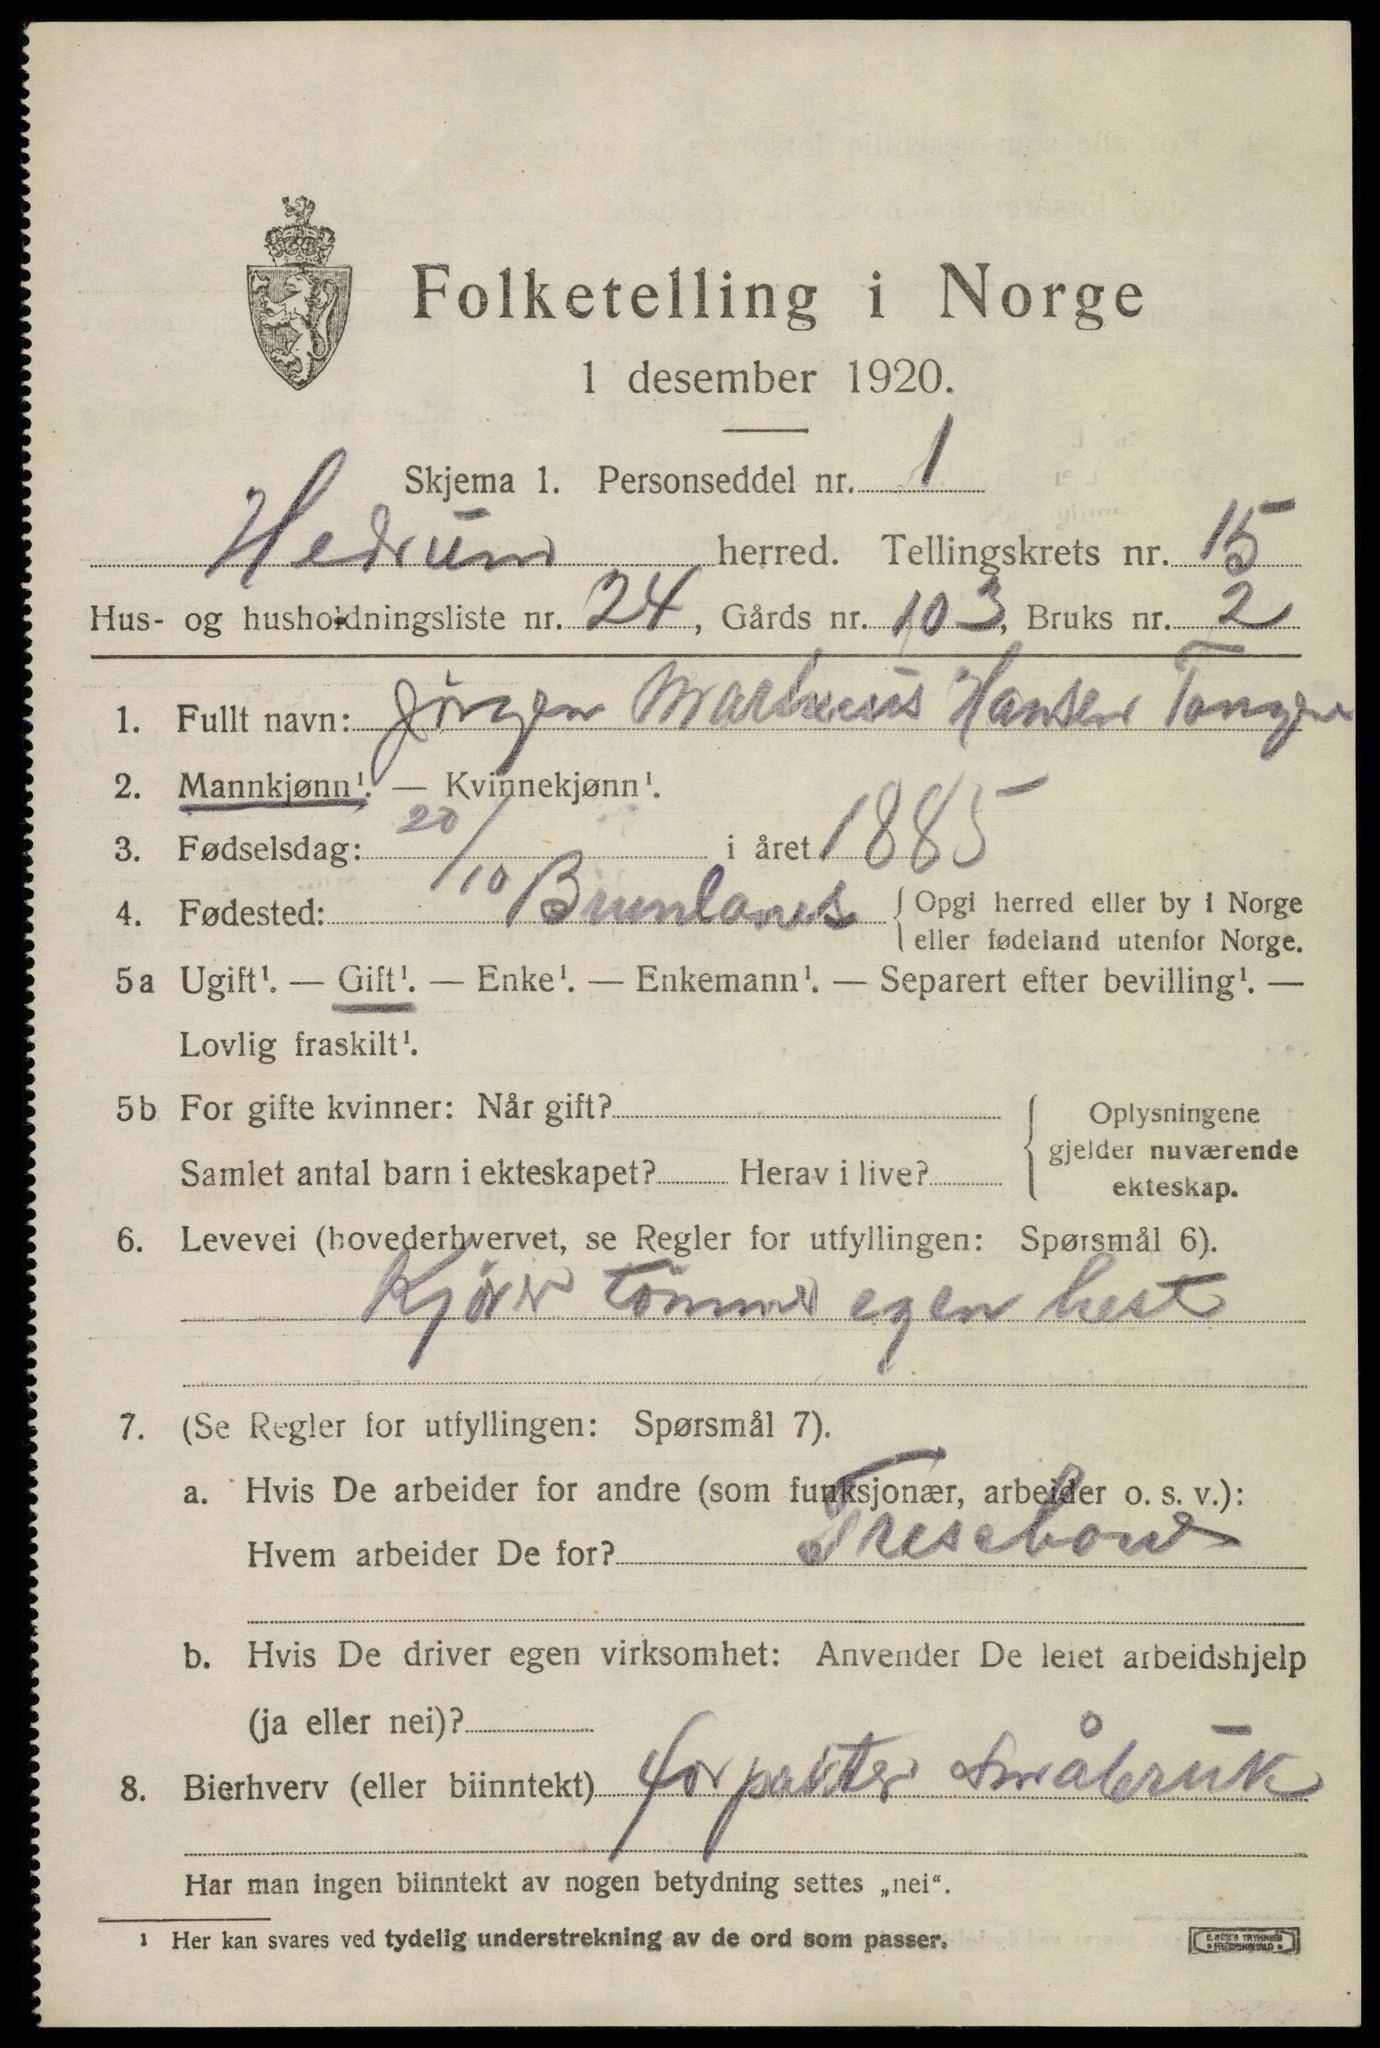 Folketelling i Norge
1 desember 1920.
Skjema 1. Personseddel nr. 1
Hedrum herred. Tellingskrets nr. 15
Hus- og husholdningsliste nr. 24, Gårds nr. 103, Bruks nr. 2
1. Fullt navn: Jörgen Marthinius Hansen Tangen
2. Mannkjønn¹. — Kvinnekjønn¹.
3. Fødselsdag: 20/10 i året 1885
4. Fødested: Brunlanes { Opgi herred eller by i Norge
eller fødeland utenfor Norge.
5a Ugift¹. — Gift¹. — Enke¹. — Enkemann¹. — Separert efter bevilling¹. —
Lovlig fraskilt¹.
5b For gifte kvinner: Når gift? { Oplysningene
gjelder nuværende
Samlet antal barn i ekteskapet? Herav i live?
ekteskap.
6. Levevei (hovederhvervet, se Regler for utfyllingen: Spørsmål 6).
Kjører tømmer egen hest
7. (Se Regler for utfyllingen: Spørsmål 7).
a. Hvis De arbeider for andre (som funksjonær, arbeider o. s. v.):
Hvem arbeider De for? Treschow
b. Hvis De driver egen virksomhet: Anvender De leiet arbeidshjelp
(ja eller nei)?
8. Bierhverv (eller biinntekt) forpakter Småbruk
Har man ingen biinntekt av nogen betydning settes „nei“.
¹ Her kan svares ved tydelig understrekning av de ord som passer.